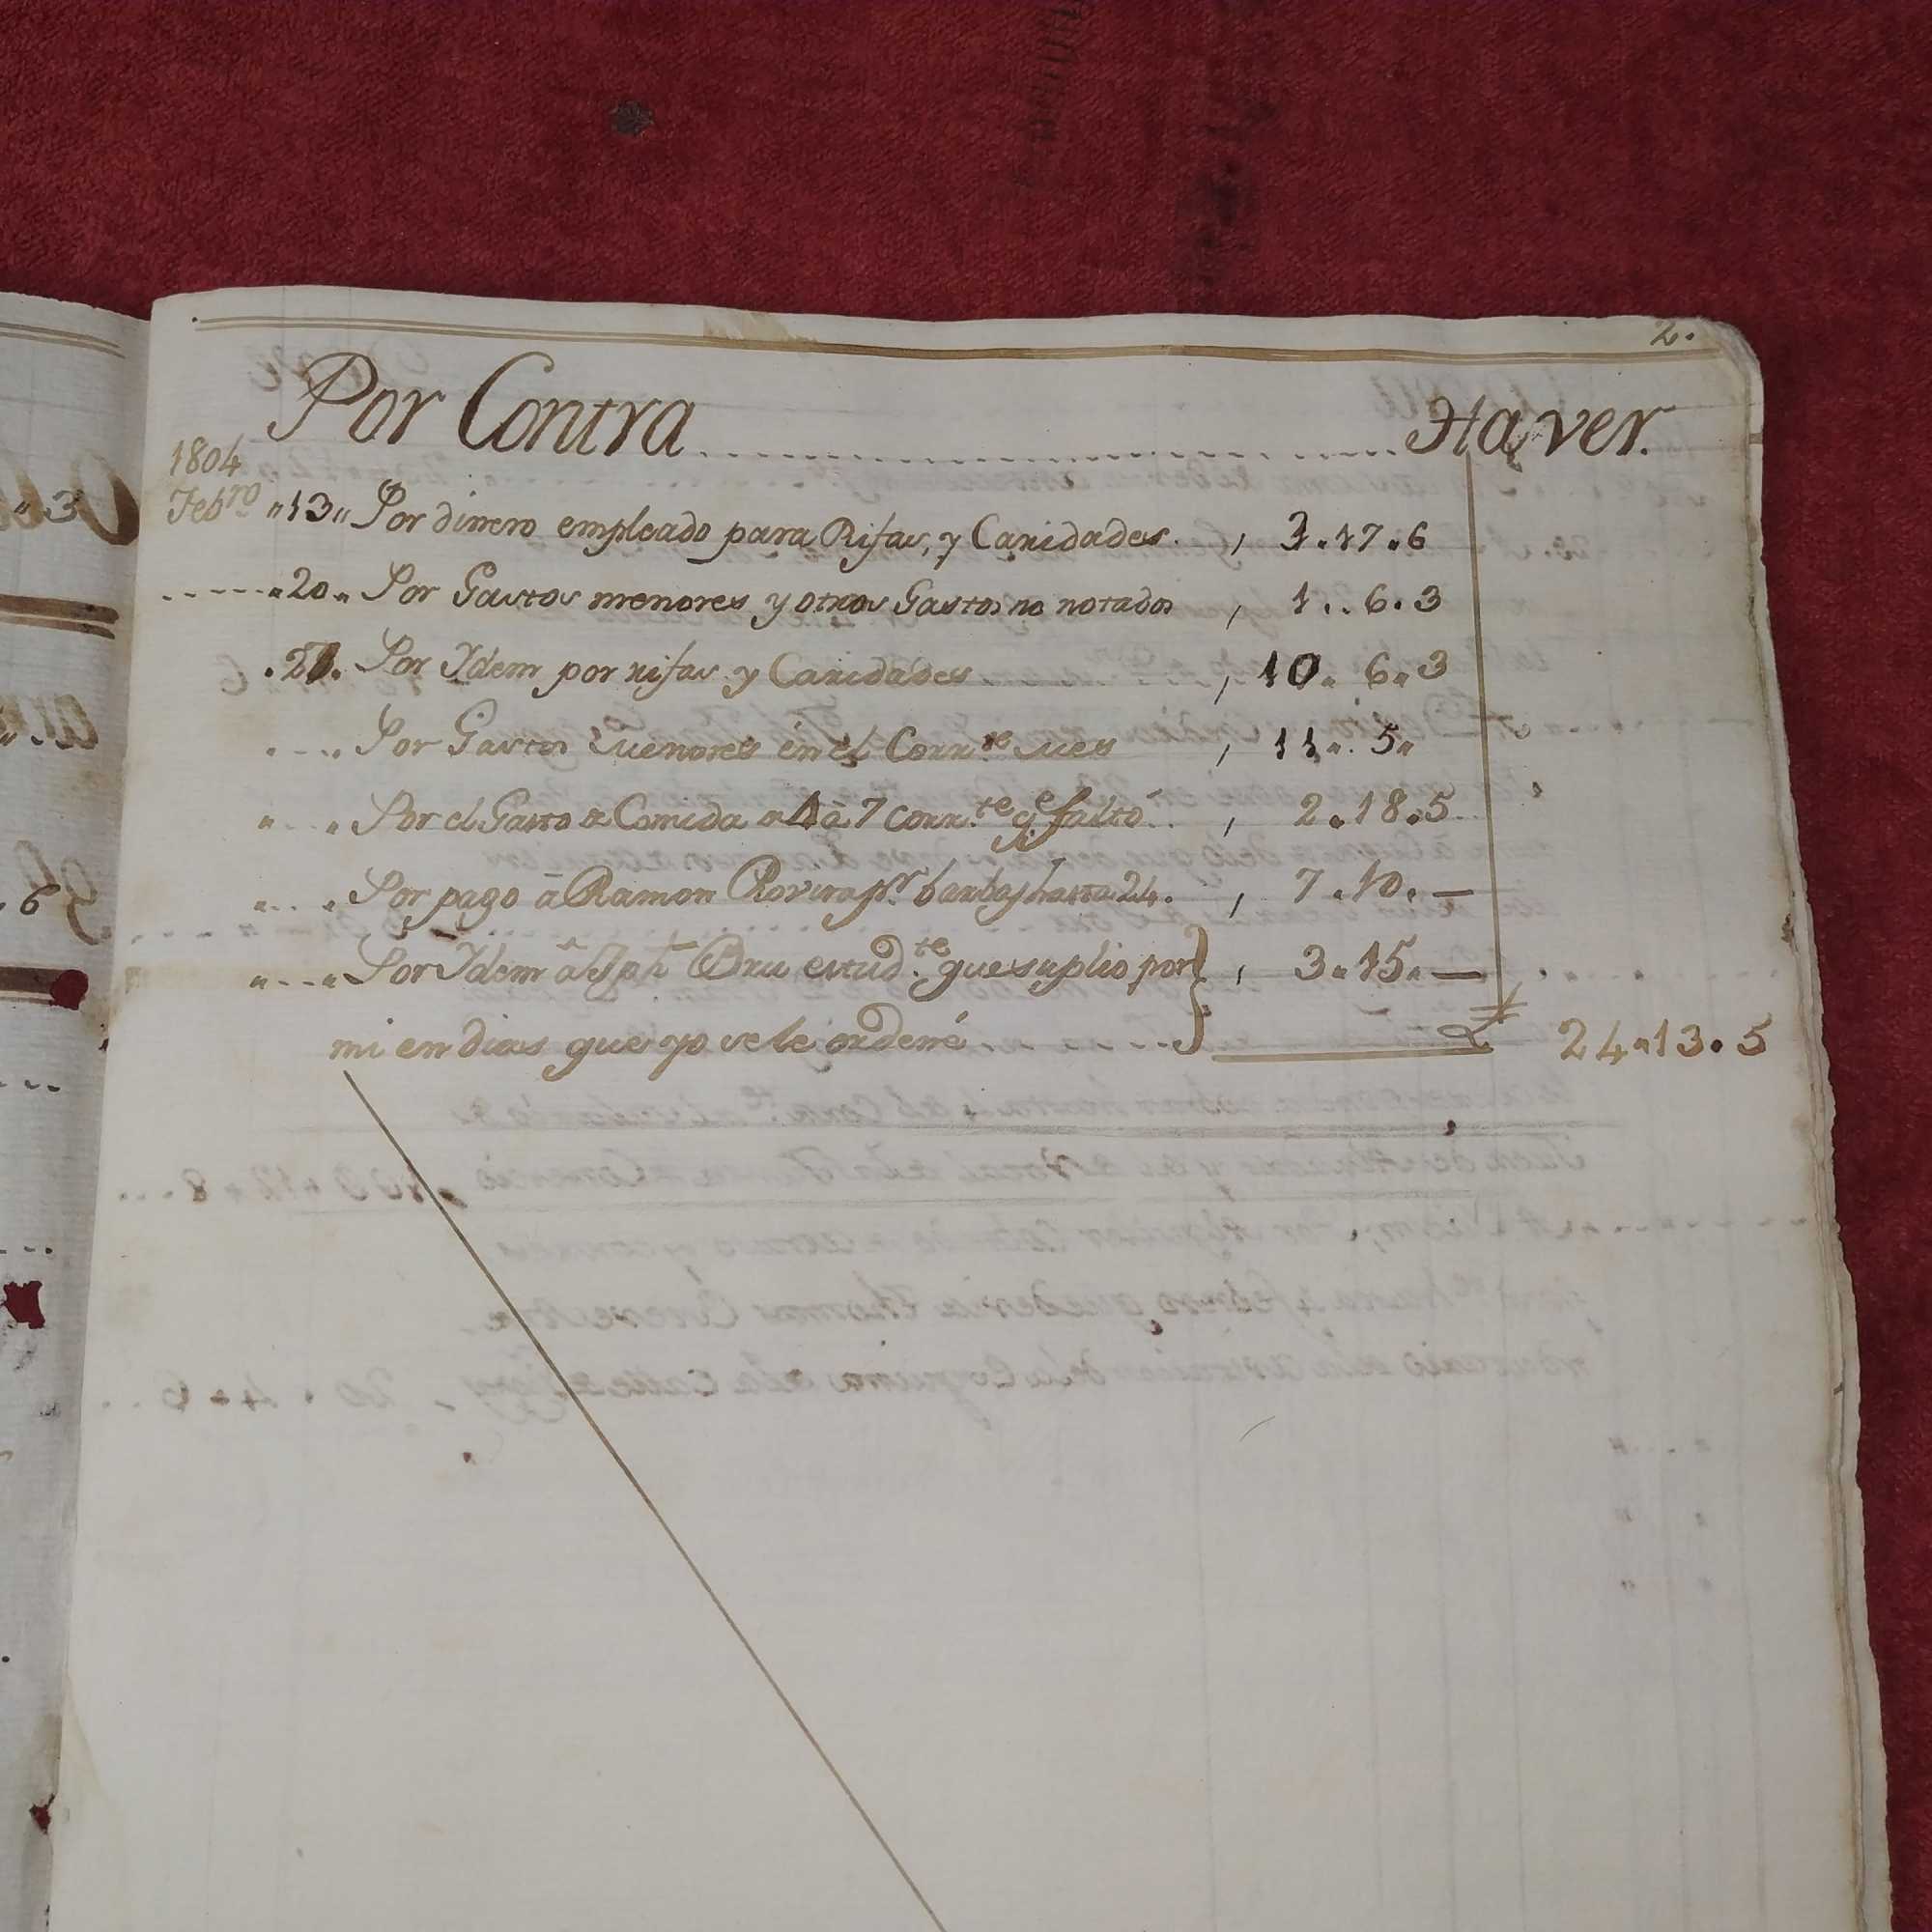 2.
Por Contra Haver.
1804
Feb.ro "13" Por dinero empleado para Rifas, y Caridades. , 3.17.6
"20" Por Gastos menores y otros Gastos no notados , 1..6.3
Por Idem por rifas y Caridades , 10. 6.3
Por Gastos menores en el Corr.te mes , 11.. 5"
Por el Gasto Comida 4 â 7 corr.te q.e faltó. , 2.18.5
Por pago â Ramon Rovira p.r barbas hasta 24. , 7.10.—
Por Idem â Jph Bru estud.te que suplió por , 3.15.—
mi en dias que yo se le ordené 24.13.5